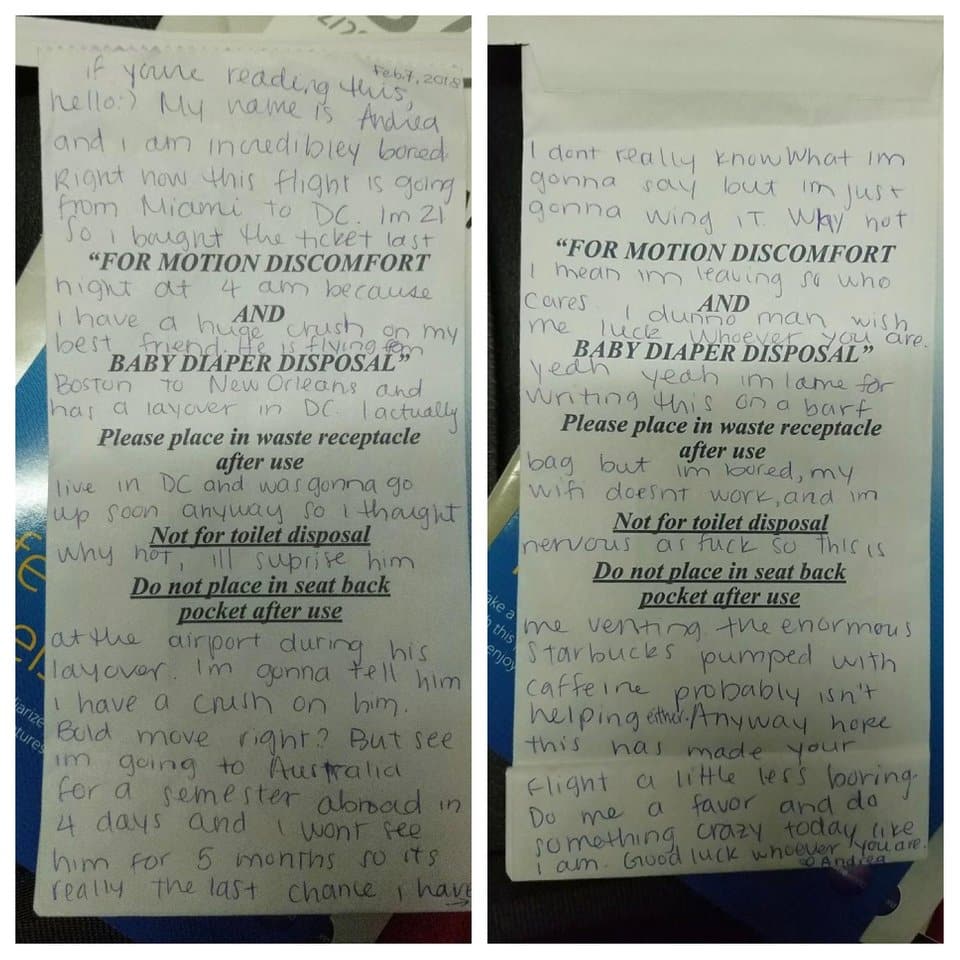 Feb.7, 2018
if youre reading this,
hello:) My name is Andrea
and i am incredibley bored.
Right now this flight is going
from Miami to DC. Im 21
so i baught the ticket last
"FOR MOTION DISCOMFORT
night at 4 am because
AND
I have a huge crush on my
best friend. He is flying from
BABY DIAPER DISPOSAL"
Boston to New Orleans and
has a layover in DC. I actually
Please place in waste receptacle
after use
live in DC and was gonna go
up soon anyway so i thaught
Not for toilet disposal
why not, ill suprise him
Do not place in seat back
pocket after use
at the airport during his
layover. Im gonna tell him
i have a crush on him.
Bold move right? But see
im going to Australia
for a semester abroad in
4 days and i wont see
him for 5 months so its
really the last chance i have
→
I dont really know what im
gonna say but im just
gonna wing it. Why not
"FOR MOTION DISCOMFORT
I mean im leaving so who
cares. I dunno man wish
AND
me luck whoever you are.
BABY DIAPER DISPOSAL"
yeah yeah im lame for
writing this on a barf
Please place in waste receptacle
after use
bag but im bored, my
wifi doesnt work, and im
Not for toilet disposal
nervous as fuck so this is
Do not place in seat back
pocket after use
me venting. the enormous
Starbucks pumped with
caffeine probably isn't
helping either. Anyway hope
this has made your
flight a little less booring.
Do me a favor and do
something crazy today like
i am. Good luck whoever you are.
Andrea